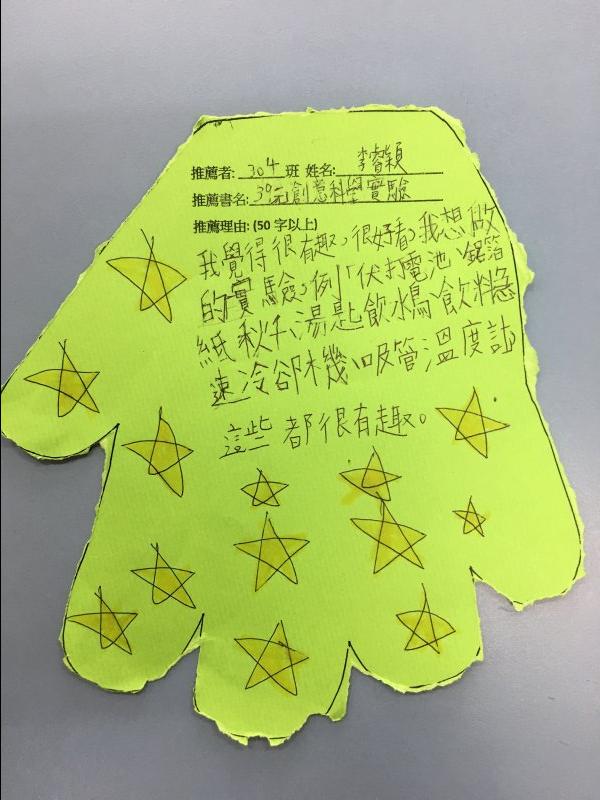 推薦者: 304 班 姓名: 李睿穎
推薦書名: 39元創意科學實驗
推薦理由: (50 字以上)
我覺得很有趣，很好看，我想做
的實驗，例「伏打電池、鋁箔
紙秋千、湯匙飲水鳥、飲料急
速冷卻機、吸管溫度計
這些都很有趣。